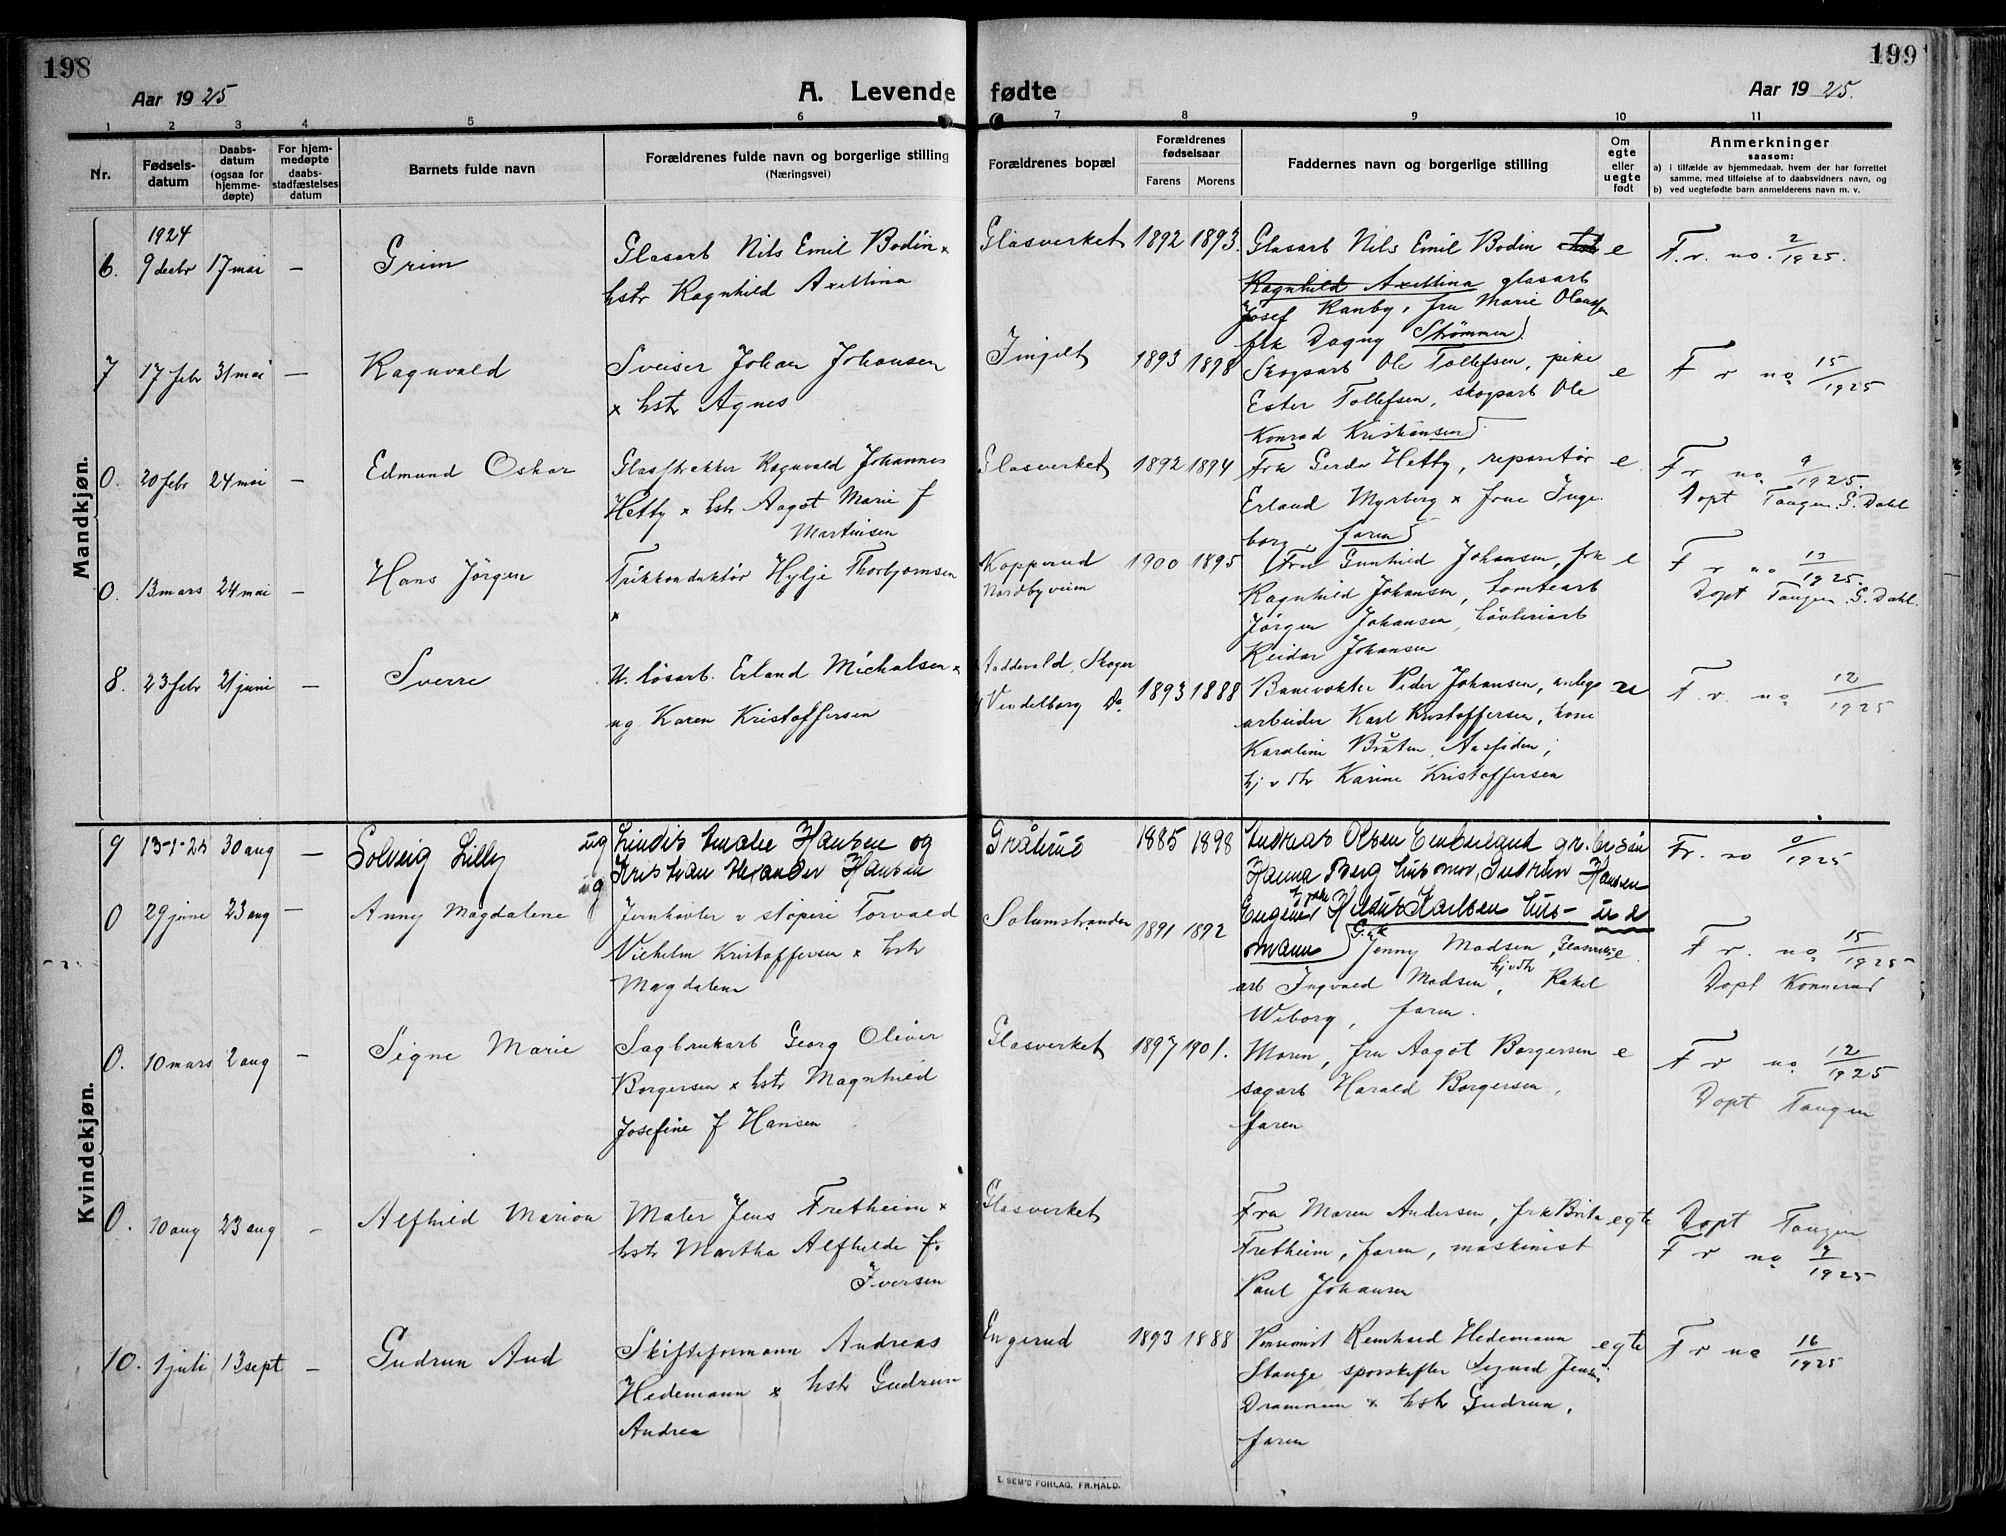 198
Aar 1925
A. Levende
1 2 3 4 5 6
Nr. Fødsels-datum Daabs-datum (ogsaa for hjemme-døpte) For hjem-medøpte daabs-stadfæstelses datum Barnets fulde navn Forældrenes fulde navn og borgerlige stilling (Næringsvei)
Mandkjøn.
1924
6. 9 decbr 17 mai — Grim Glasarb Nils Emil Bodin x
hstr Ragnhild Axellina
7 17 febr 31 mai — Ragnvald Sveiser Johan Johansen
x hstr Agnes
0. 20 febr 24 mai — Edmund Oskar Glasstrekker Ragnvald Johannes
Hetty x hstr Aagot Marie f
Martinsen
0. 13 mars 24 mai — Hans Jörgen Trikkonduktör Hylje Thorbjornsen
x
8. 23 febr 21 juni — Sverre u. løsarb. Erland Michalsen x
ug. Karen Kristoffersen
Kvindekjøn.
9 13-1-25 30 aug — Solveig Lilly ug Hansen og
ug Kristian Hansen
0 29 juni 23 aug — Anny Magdalene Jernhøvler v støperi Torvald
Vilhelm Kristoffersen x hstr
Magdalene
0. 10 mars 2 aug — Signe Marie Sagbrukarb Georg Oliver
Borgersen x hstr Magnhild
Josefine f Hansen
0. 10 aug 23 aug — Alfhild Marion Maler Jens Fretheim x
hstr Martha Alfhilde f.
Iversen
10. 1 juli 13 sept — Gudrun Aud Skifteformann Andreas
Hedemann x hstr Gudrun
Andrea
199
fødte
Aar 1925.
7 8 9 10 11
Forældrenes bopæl Forældrenes fødselsaar Farens Morens Faddernes navn og borgerlige stilling Om egte eller uegte født Anmerkninger saasom:
a) i tilfælde av hjemmedaab, hvem der har forrettet samme, med tilføielse af to daabsvidners navn, og
b) ved uegtefødte barn anmelderens navn m. v.
Glasverket 1892 1893. Glasarb Nils Emil Bodin e F. r. no. 2/1925.
Ragnhild Axellina glasarb
Josef Ranby, fru Marie
frk Dagny Strømmen
1893 1898 Skogsarb Ole Tollefsen, pike e F r no 15/1925
Ester Tollefsen, skogsarb Ole
Konrad Kristensen
Glasverket 1892 1894 Frk Gerda Hetty, reparatør e F r no 9/1925.
Erland Myrberg x frue Inge- Døpt Tangen. S. Dahl
borg, faren
Kopperud 1900 1895 Fru Gunhild Johansen, frk e F r no 13/1925.
Nordbyveien Ragnhild Johansen, tomtearb Døpt Tangen. S. Dahl.
Jörgen Johansen, høvleriarb
Reidar Johansen
Skoger 1893 1888 Banevokter Peder Johansen, anlegs- u F r. no 12/1925
Vendelborg Do arbeider Karl Kristoffersen, kone
Karoline Bråten Aassiden;
hj v dtr Karine Kristoffersen
1885 1898 Andreas Olsen gr.
Fr. no /1925
Hanna Berg husmor, Gudrun Hansen
Karlsen hus-
mann
Solumstranden 1891 1892 Jenny Madsen, e F r. no 15/1925
arb Ingvald Madsen, hjvdtr Rakel Døpt Konnerud
Wiborg, faren.
Glasverket 1897 1901. Moren, fru Aagot Borgersen e F r no 12/1925
sagarb Harald Borgersen, Døpt Tangen
faren
Glasverket Fru Maren Andersen, frk Brita egte Døpt Tangen
Fretheim, faren, maskinist F r no 7/1925
Paul Johansen
Engerud 1893 1888 Pensionist Reinhard Hedemann egte F r no 16/1925
Stange sporskifter Sigurd Jensen
Drammen x hstr Gudrun,
faren
E. SEM'S FORLAG, FR.HALD.